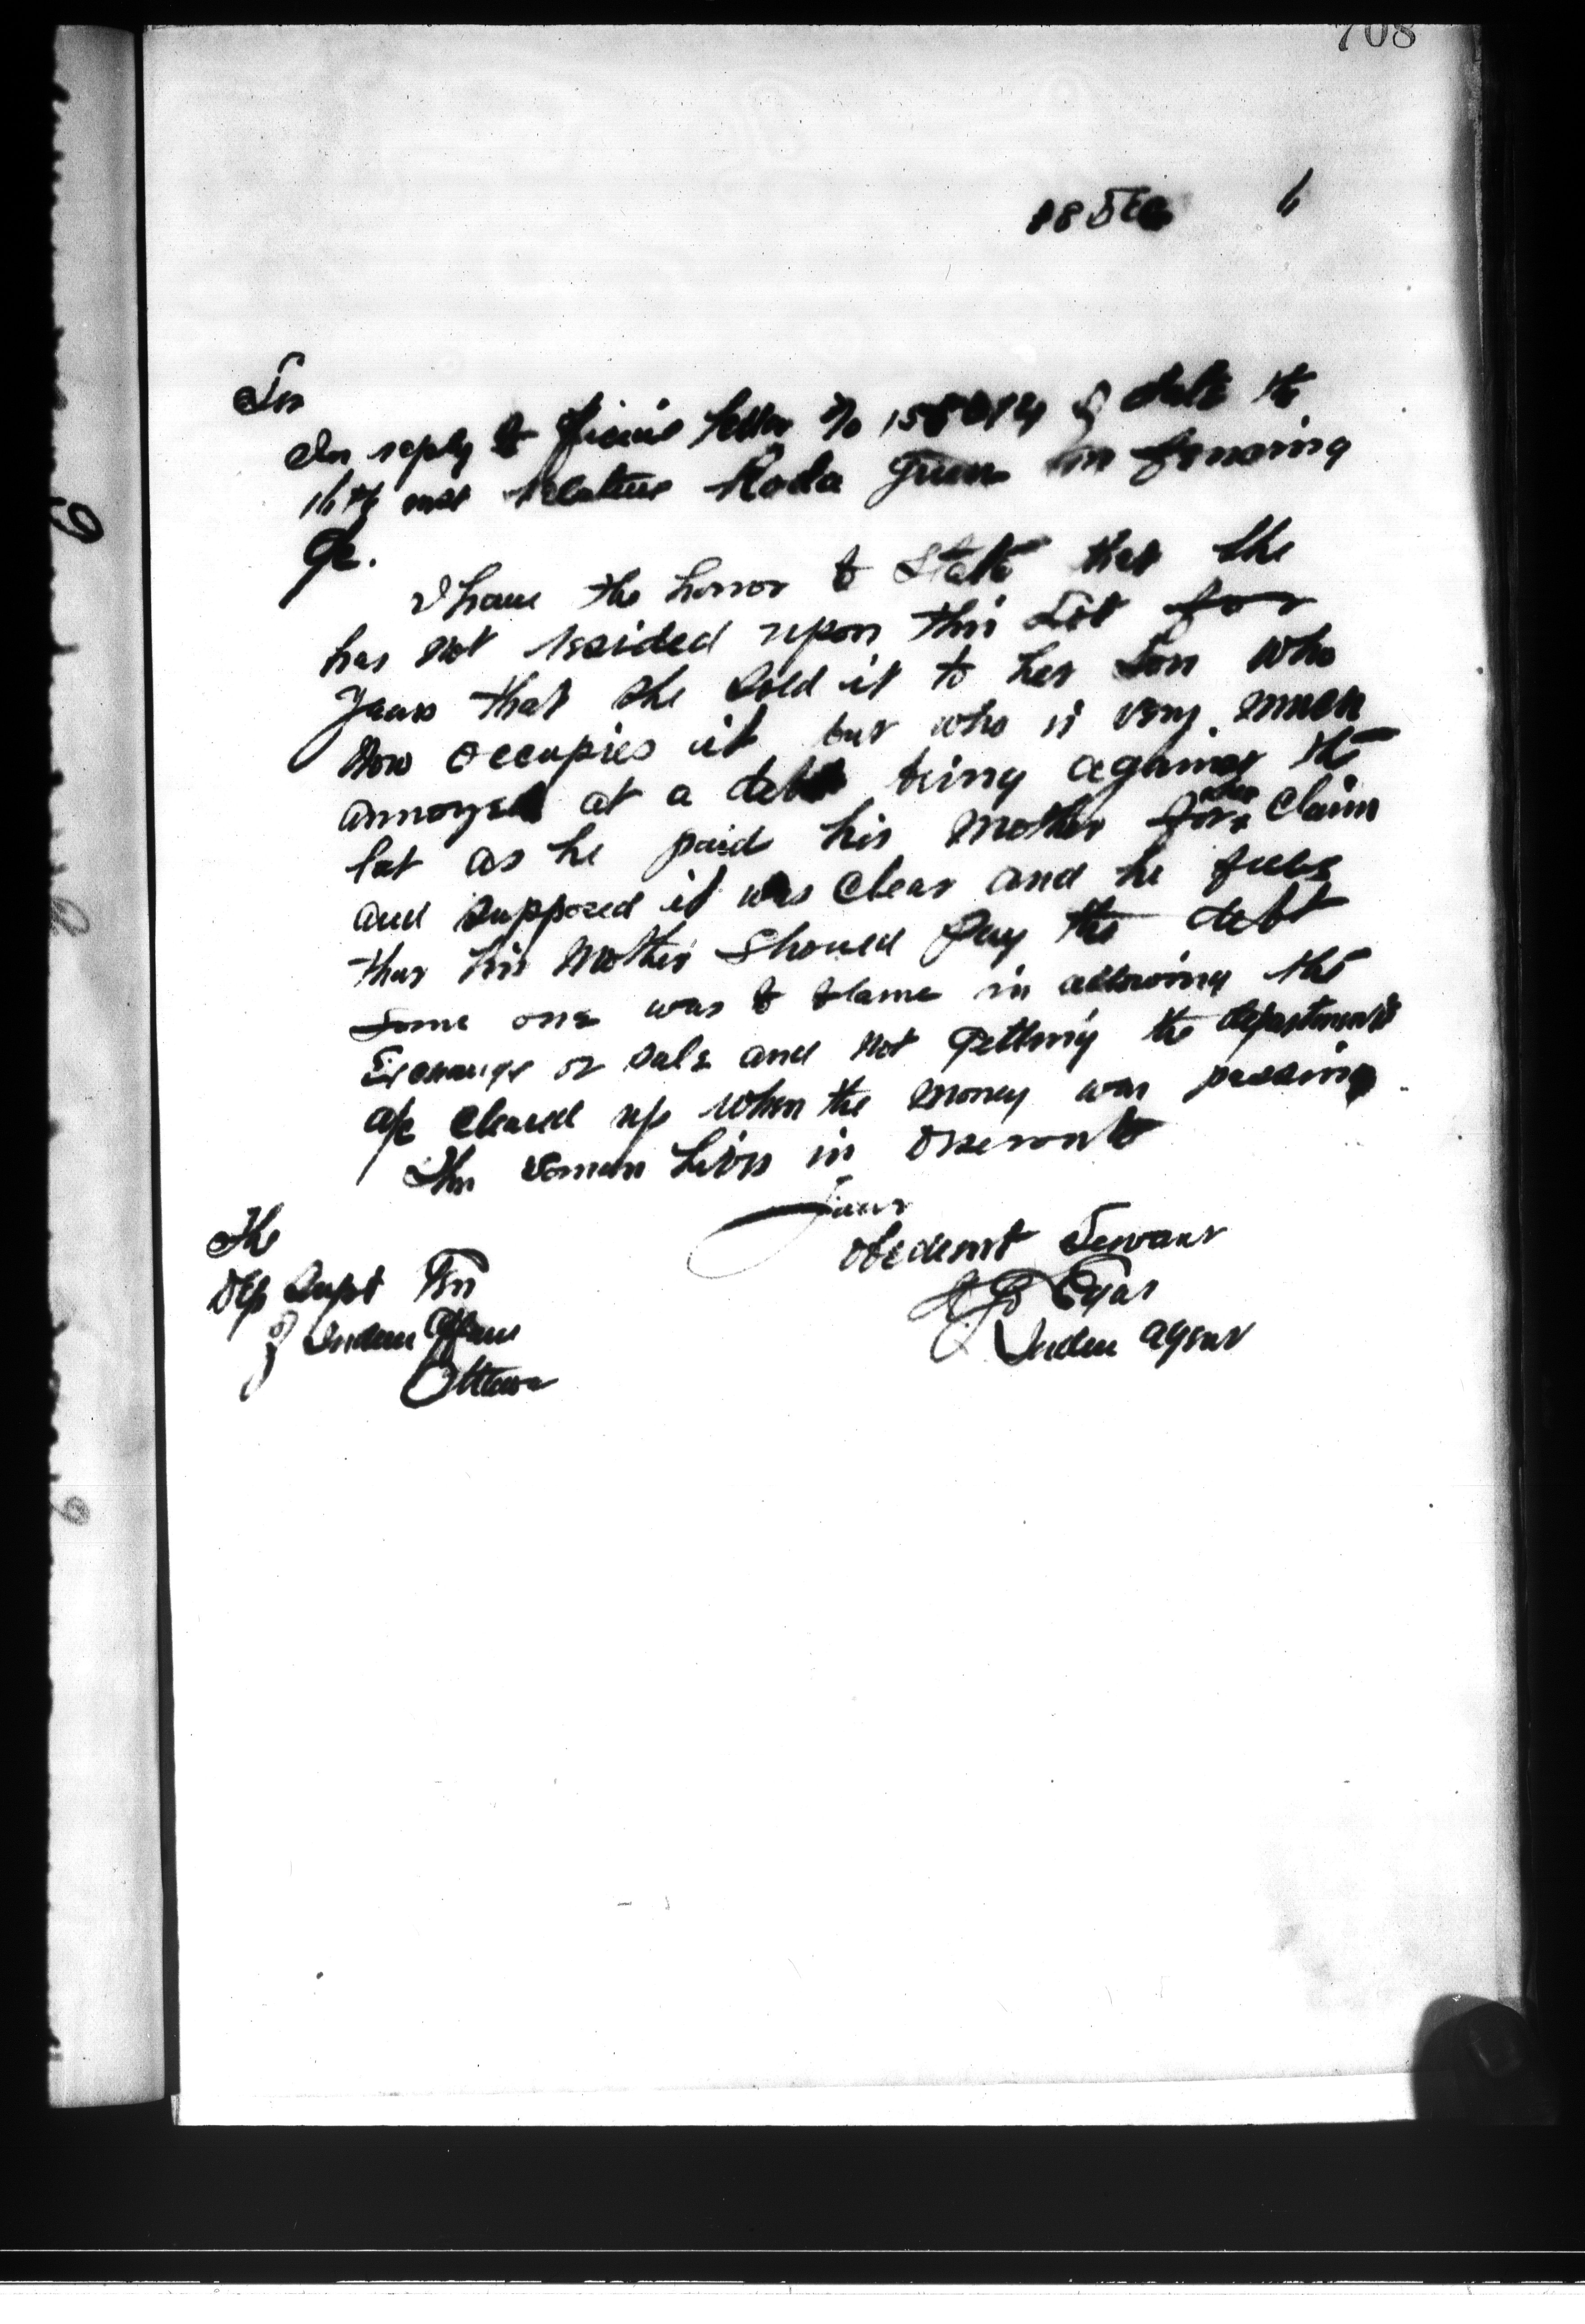 708
Sir
In reply to official letter No of date the
16th inst relative Roda Green fencing
a/c.
I have the honor to state that she
has not resided upon this Lot for
years that she sold it to her Son who
now occupies it but who is very much
annoyed at a debt being against the
lot as he paid his mother for claim
and supposed it was clear and he feels
that his mother should pay the debt
Some one was to blame in allowing the
Exchange or sale and not getting the departments
a/c cleared up when the money was passing.
The woman lives in
Your
Obedient Servant
Indian Agent
The
Dep Supt Gn
of Indian Affairs
Ottawa